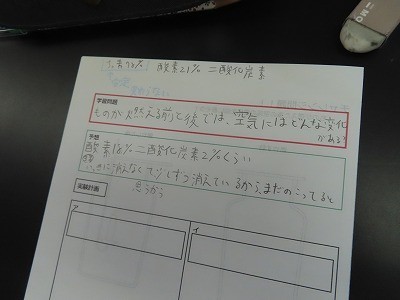 素78% 酸素21% 二酸化炭素
学習問題
ものが燃える前と後では、空気にはどんな変化
がある?
予想
酸素18% 二酸化炭素2%くらい
いっきに消えなくて少しずつ消えているからまだのこってると
思うから
実験計画
ア
イ